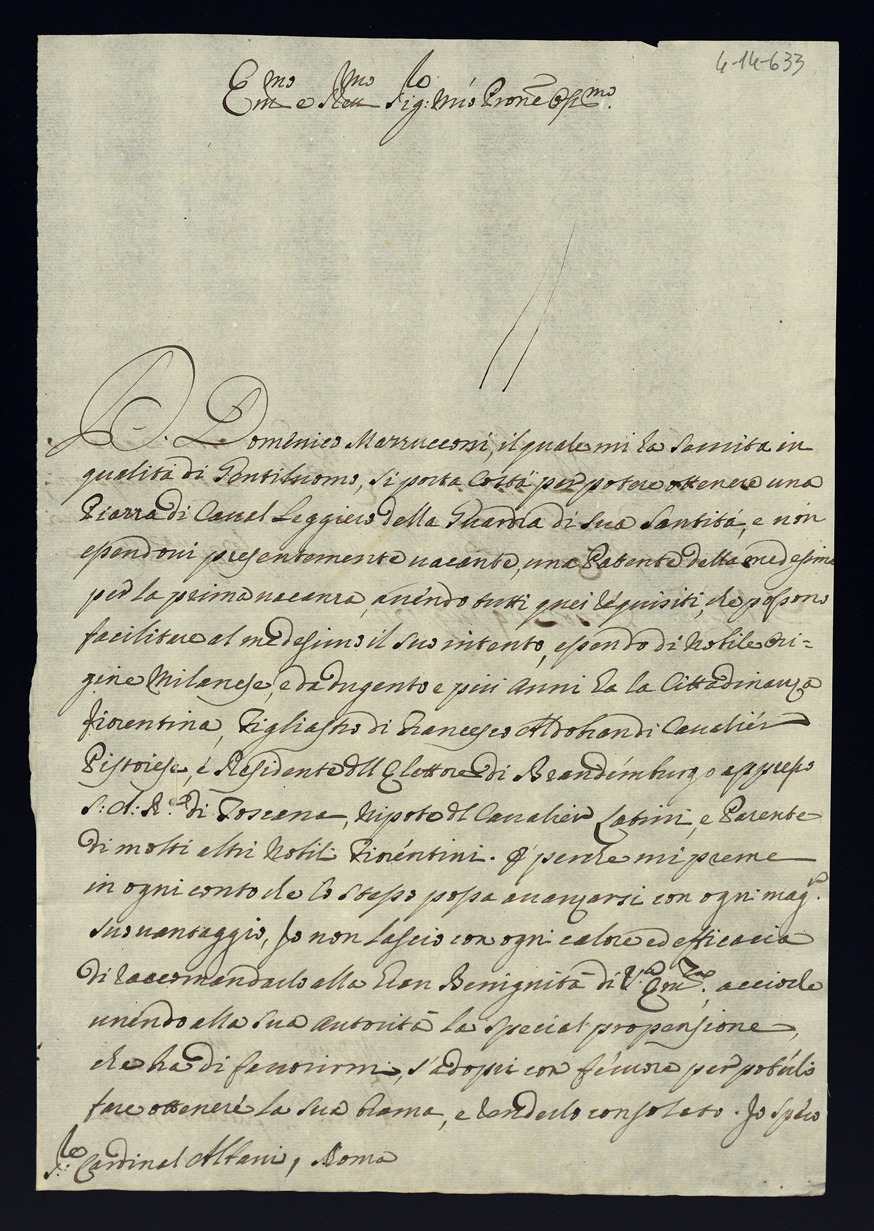 4-14-633
Em.mo e R.mo Sig.re Mio Prone Oss.mo
Domenico Mazzucconi, il quale mi ha servito in
qualità di Gentiluomo, si porta Costà per potere ottenere una
Piazza di Caval Leggiero della Guardia di Sua Santità, e non
essendovi presentemente vacante, una Patente della medesima
per la prima vacanza, avendo tutti quei requisiti, che possono
facilitare al medesimo il suo intento, essendo di Nobile Ori=
gine Milanese, e da dugento e più anni ha la Cittadinanza
fiorentina, Figliastro di Francesco Aldobrandi Cavalier
Pistoiese, e Residente dell Elettore di Brandemburgo appresso
S: A: R.e di Toscana, Nipote del Cavalier Latini, e Parente
di molti altri Nobili Fiorentini. E perche mi preme
in ogni conto che lo stesso possa avanzarsi con ogni mag.r
suo vantaggio, Io non lascio con ogni calore ed efficacia
di raccomandarlo alla Gran Benignità di V.a Em.za, accioche
unendo alla sua autorità la special propensione,
che ha di favorirmi, s'adopri con fervore per poterli
fare ottenere la sua brama, e renderlo consolato. Io spero
S.re Cardinal Albani, Roma